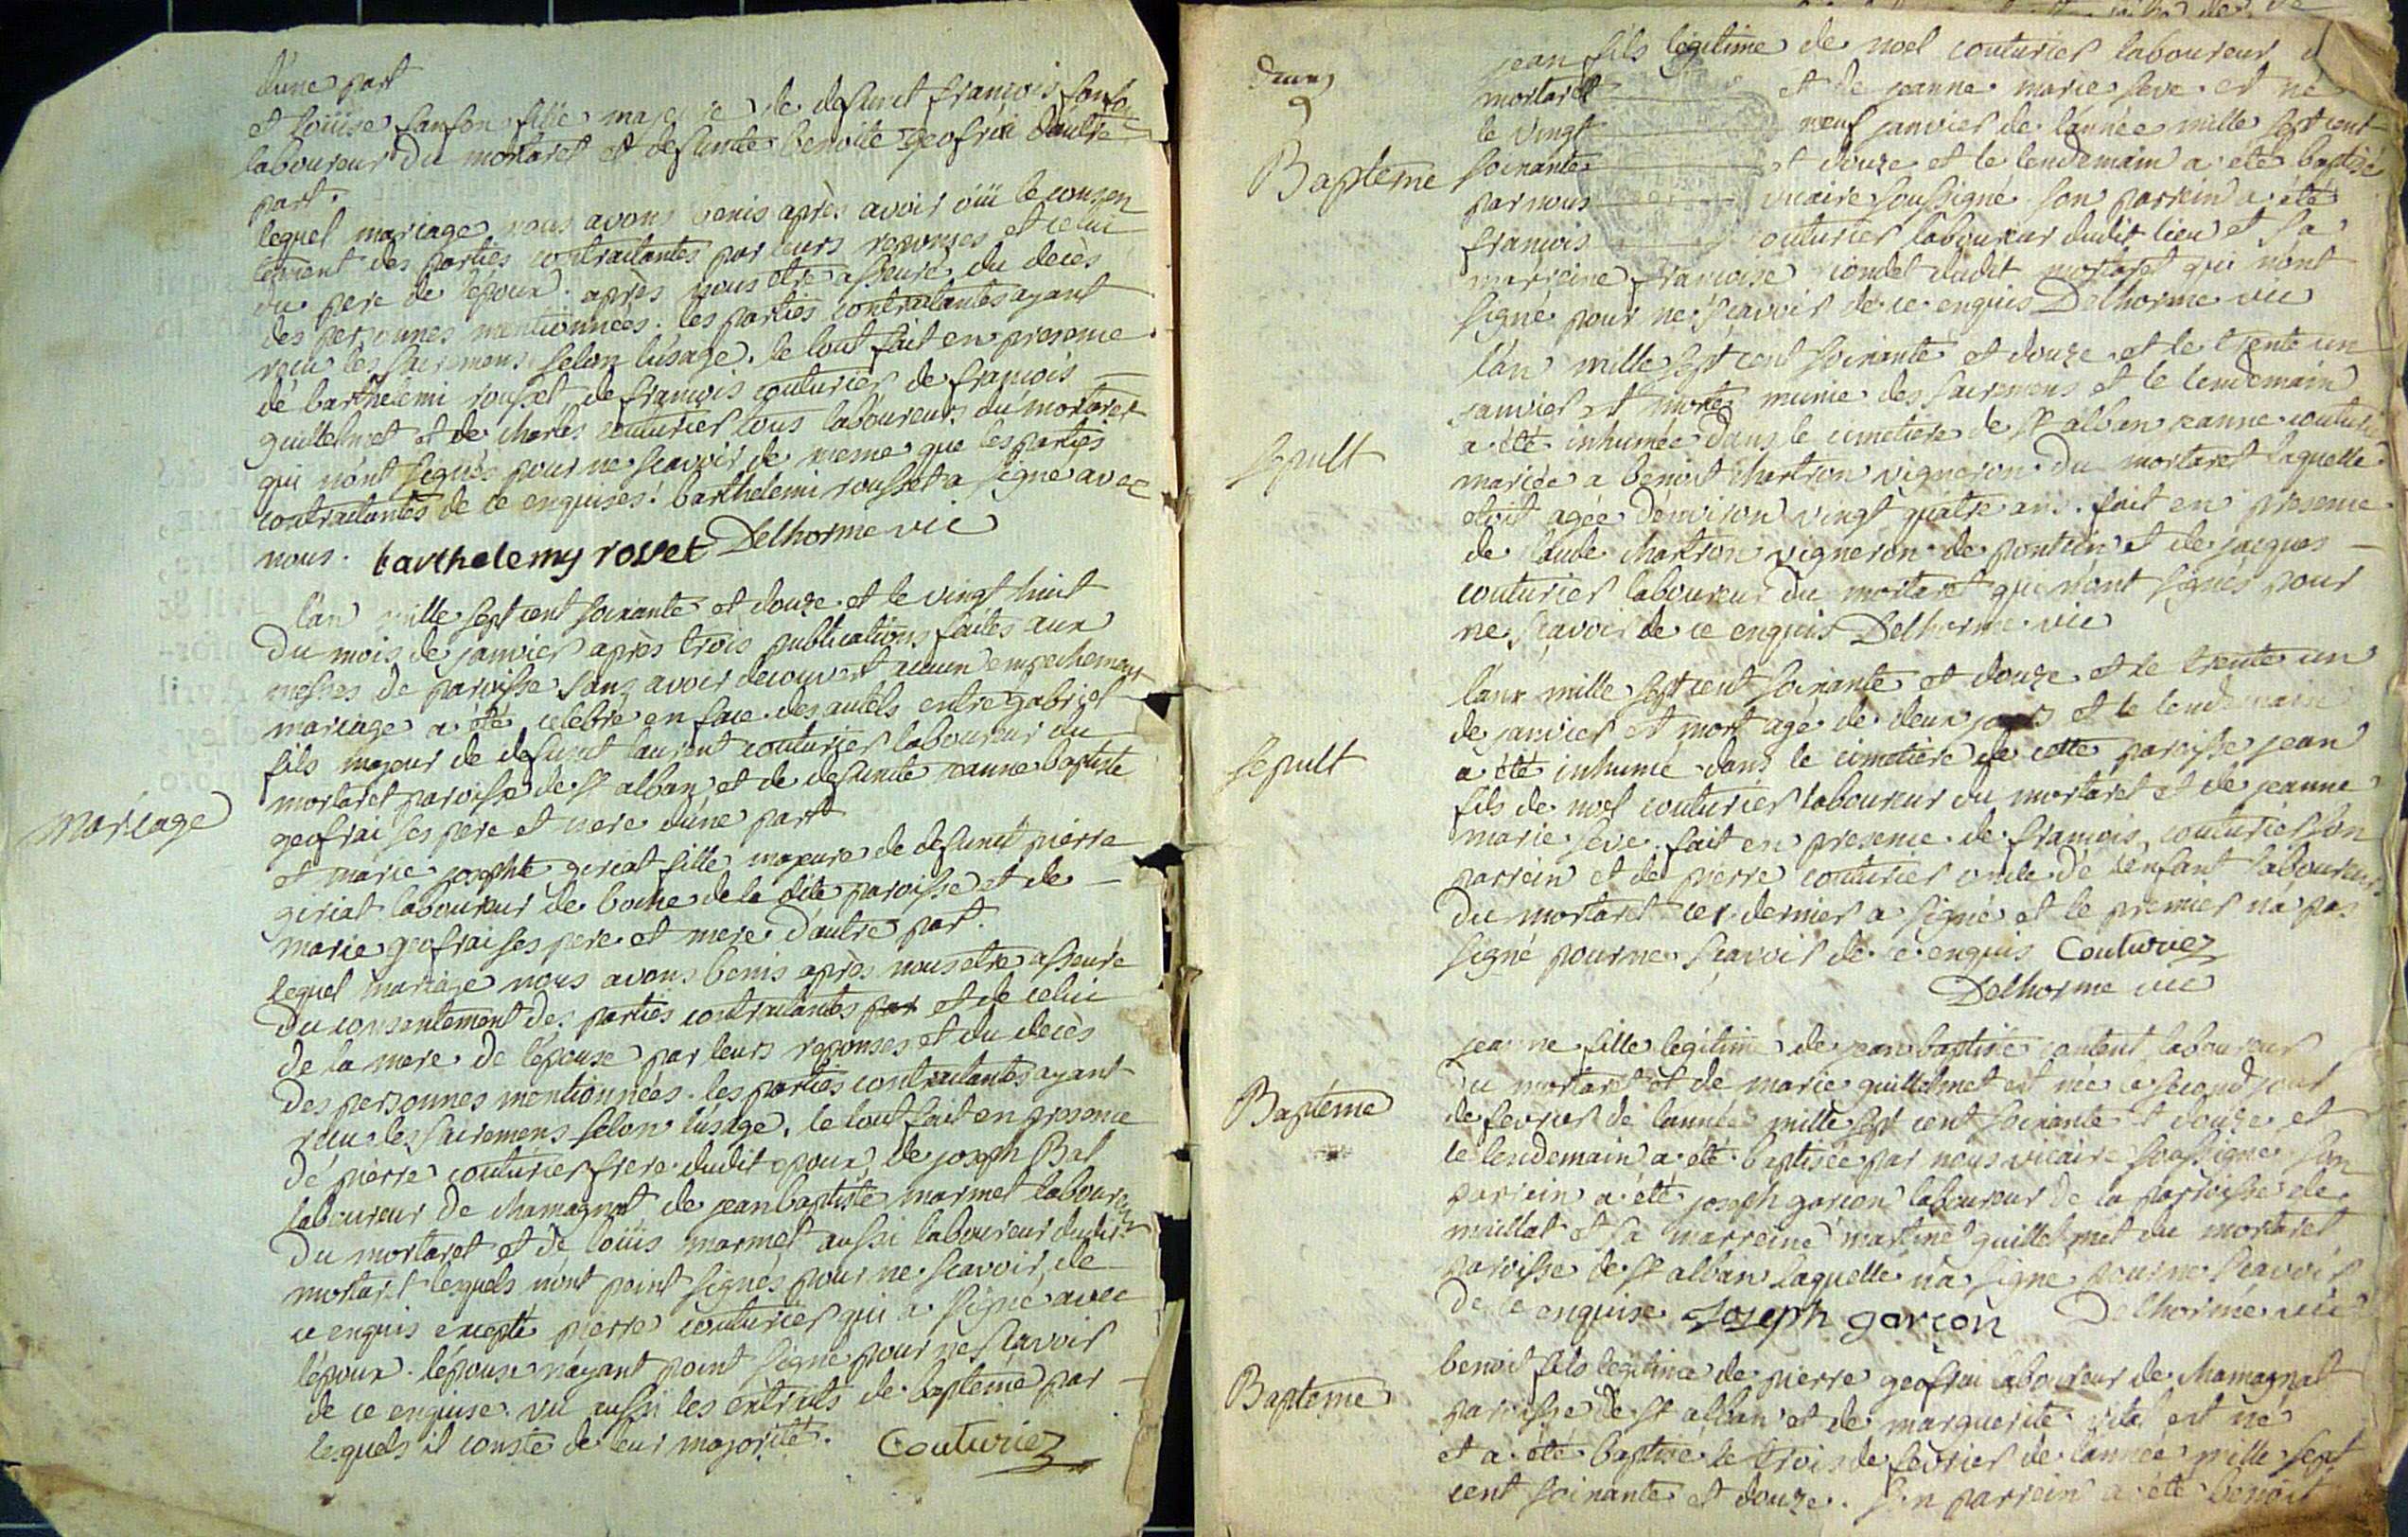 d'une part
et Loüise sanson fille majeure de defunct françois sanson
laboureur du mortaret et defuncte benoite geofrai d'autre
part.
lequel mariage nous avons benis après avoir oüi le consen
tement des parties contractantes par leurs reponses et celui
du pere de l'epoux. après nous etre asseuré du decès
des personnes mentionnées. les parties contractantes ayant
recu les sacremens selon l'usage. le tout fait en presence
de barthelemi rousset de françois couturier de françois
guillelmet et de charles couturier tous laboureurs du mortaret
qui n'ont signés pour ne scavoir de meme que les parties
contractantes de ce enquises. barthelemi rousset a signé avec
nous. barthelemy roset Delhorme vic
Mariage
l'an mille sept cent soixante et douze et le vingt huit
du mois de janvier après trois publications faites aux
messes de paroisse sans avoir decouvert aucun empechement
mariage a été celebré en face des autels entre gabriel
fils majeur de defunct laurent couturier laboureur du
mortaret paroisse de st alban et de defuncte jeanne baptiste
geofrai ses pere et mere d'une part
et marie josephte giriat fille majeure de defunct pierre
giriat laboureur de boche de la dite paroisse et de
marie geofrai ses pere et mere d'autre part.
lequel mariage nous avons benis après nous etre asseuré
du consentement des parties contractantes par et de celui
de la mere de l'epouse par leurs reponses et du decès
des personnes mentionnées. les parties contractantes ayant
recu les sacremens selon l'usage. le tout fait en presence
de pierre couturier frere dudit epoux, de joseph Bal
laboureur de chamagnat de jean baptiste marmet laboureur
du mortaret et de loüis marmet aussi laboureur dudit
mortaret lesquels n'ont point signés pour ne scavoir de
ce enquis excepté pierre couturier qui a signé avec
l'epoux. l'epouse n'ayant point signé pour ne scavoir
de ce enquise. vu aussi les extraits de bapteme par
lesquels il conste de leur majorité. Couturier
Bapteme
jean fils légitime de noel couturier laboureur
mortaret et de jeanne marie seve est né
le vingt neuf janvier de l'année mille sept cent
soixante et douze et le lendemain a été baptisé
par nous vicaire soussigné. son parrein a été
françois couturier laboureur dudit lieu et sa
marreine françoise dudit mortaret qui n'ont
signé pour ne scavoir de ce enquis Delhorme vic
Sepult
l'an mille sept cent soixante et douze et le trente un
janvier est morte munie des sacremens et le lendemain
a été inhumée dans le cimetiere de st alban jeanne couturier
mariée a benoit chartron vigneron du mortaret laquelle
etoit agée d'environ vingt quatre ans. fait en presence
de claude chartron vigneron de poncin et de jacques
couturier laboureur du mortaret qui n'ont signés pour
ne scavoir de ce enquis Delhorme vic
sepult
l'an mille sept cent soixante et douze et le trente un
de janvier est mort agé de deux jours et le lendemain
a été inhumé dans le cimetiere de cette paroisse jean
fils de noel couturier laboureur du mortaret et de jeanne
marie seve. fait en presence de françois couturier son
parrein et de pierre couturier oncle de l'enfant laboureurs
du mortaret ce dernier a signé et le premier n'a pas
signé pour ne scavoir de ce enquis Couturier
Delhorme vic
Bapteme
jeanne fille legitime de jean baptiste laboureur
du mortaret et de marie guillelmet est née le second jour
de fevrier de l'année mille sept cent soixante et douze et
le lendemain a été baptisée par nous vicaire soussigné son
parrein a été joseph garcon laboureur de la parroisse de
maillat et sa marreine martine guillelmet du mortaret
paroisse de st alban laquelle n'a signé pour ne scavoir
de ce enquise Joseph garcon Delhorme vic
Bapteme
benoit fils legitime de pierre geofrai laboureur de chamagnat
paroisse de st alban et de marguerite est né
et a été baptisé le trois de fevrier de l'année mille sept
cent soixante et douze. son parrein a été benoit